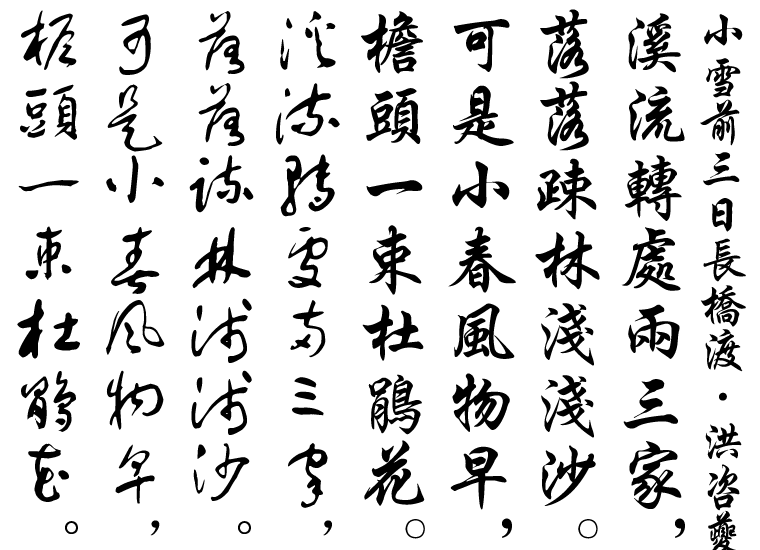 小雪前三日長橋渡·洪咨夔
溪流轉處兩三家，
落落疎林淺淺沙。
可是小春風物早，
檐頭一束杜鵑花。
溪流轉處兩三家，
落落疎林淺淺沙。
可是小春風物早，
檐頭一束杜鵑花。